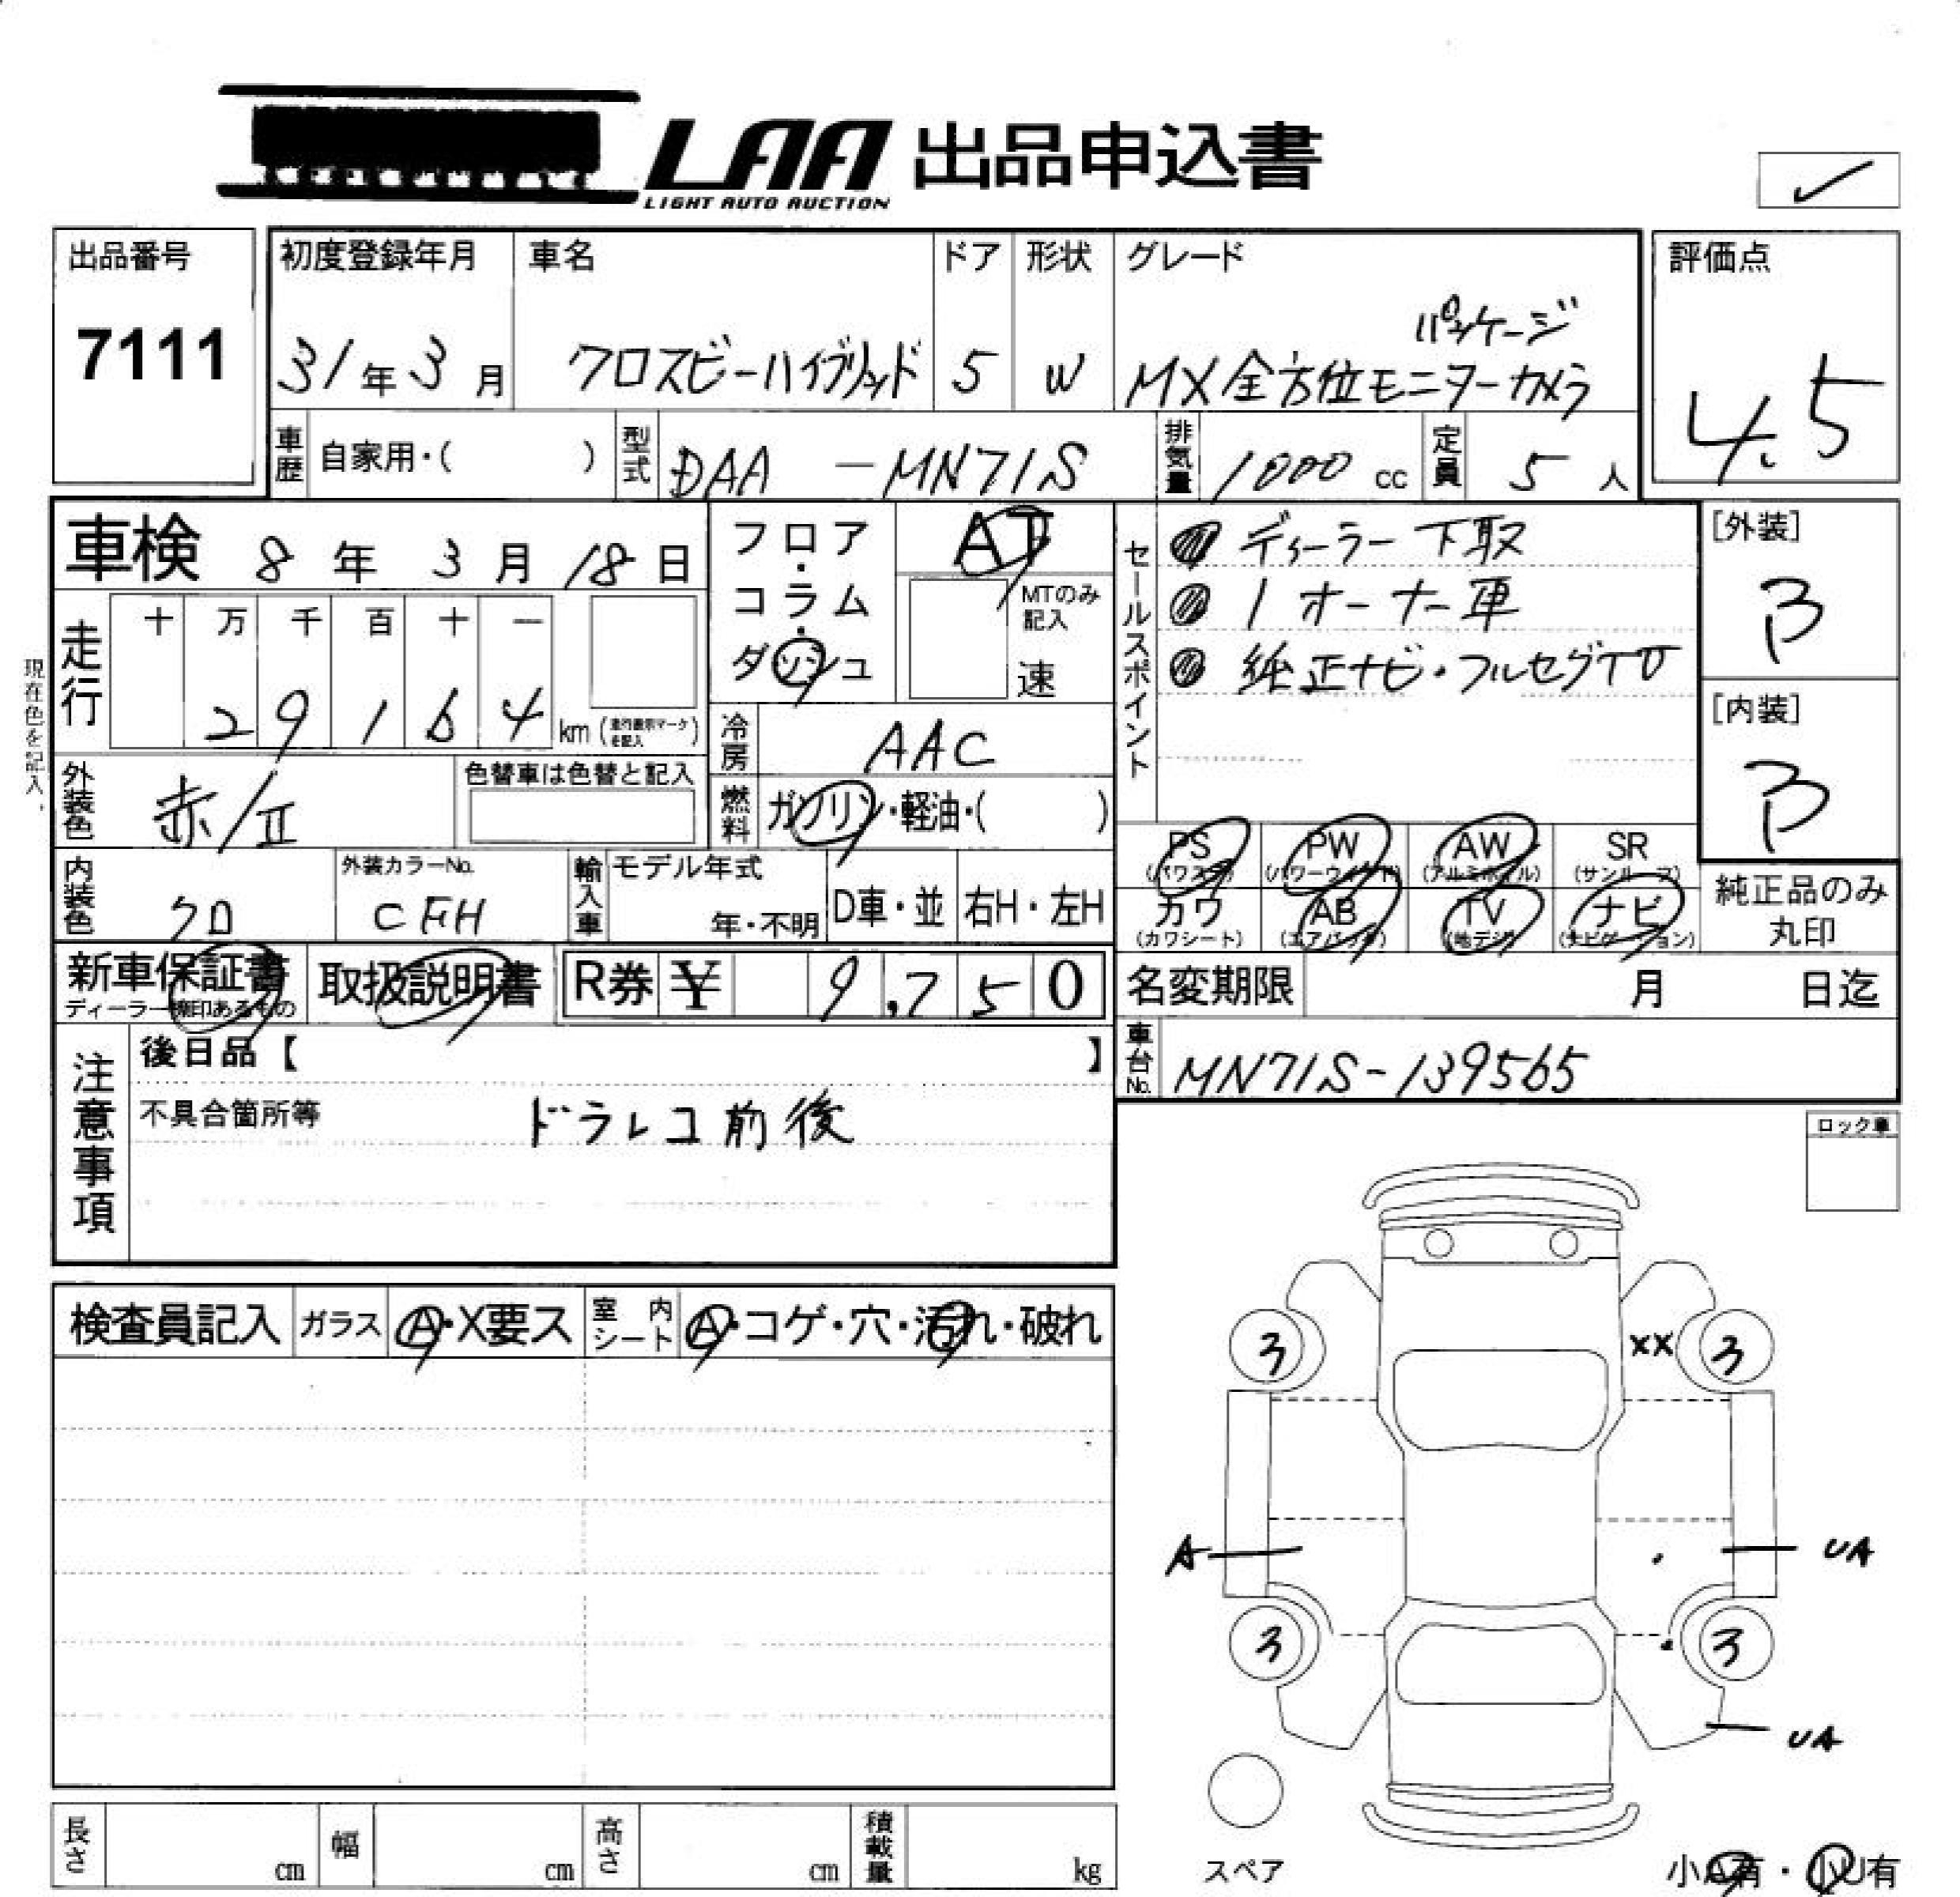 LAA 出品申込書
LIGHT AUTO AUCTION
出品番号
7111
初度登録年月
31年3月
車名
クロスビーハイブリッド
ドア
5
形状
W
グレード
パッケージ
MX全方位モニターカメラ
評価点
4.5
車歴 自家用・( )
型式 DAA-MN71S
排気量 1000 cc
定員 5 人
車検 8年3月18日
フロア・コラム・ダッシュ
AT
MTのみ記入
速
セールスポイント
ディーラー下取
1オーナー車
純正ナビ・フルセグTV
[外装]
B
[内装]
B
現在色を記入。
走行
十 万 千 百 十 一
2 9 1 6 4 km (走行表示マークを記入)
冷房 AAC
外装色 赤/II
色替車は色替と記入
燃料 ガソリン・軽油・( )
PS (パワステ)
PW (パワーウィンド)
AW (アルミホイル)
SR (サンルーフ)
内装色 クロ
外装カラーNo.
CFH
輸入車 モデル年式
年・不明
D車・並 右H・左H
カワ (カワシート)
AB (エアバッグ)
TV (地デジ)
ナビ (ナビゲーション)
純正品のみ
丸印
新車保証書
ディーラー捺印あるもの
取扱説明書
R券 ¥ 9,750
名変期限 月 日迄
車台No. MN71S-139565
注意事項
後日品【 】
不具合箇所等 ドラレコ前後
ロック車
検査員記入 ガラス A・X要ス 室内シート A・コゲ・穴・汚れ・破れ
3 XX 3
A UA
3 3
UA
スペア
小A有・小U有
長さ cm 幅 cm 高さ cm 積載量 kg